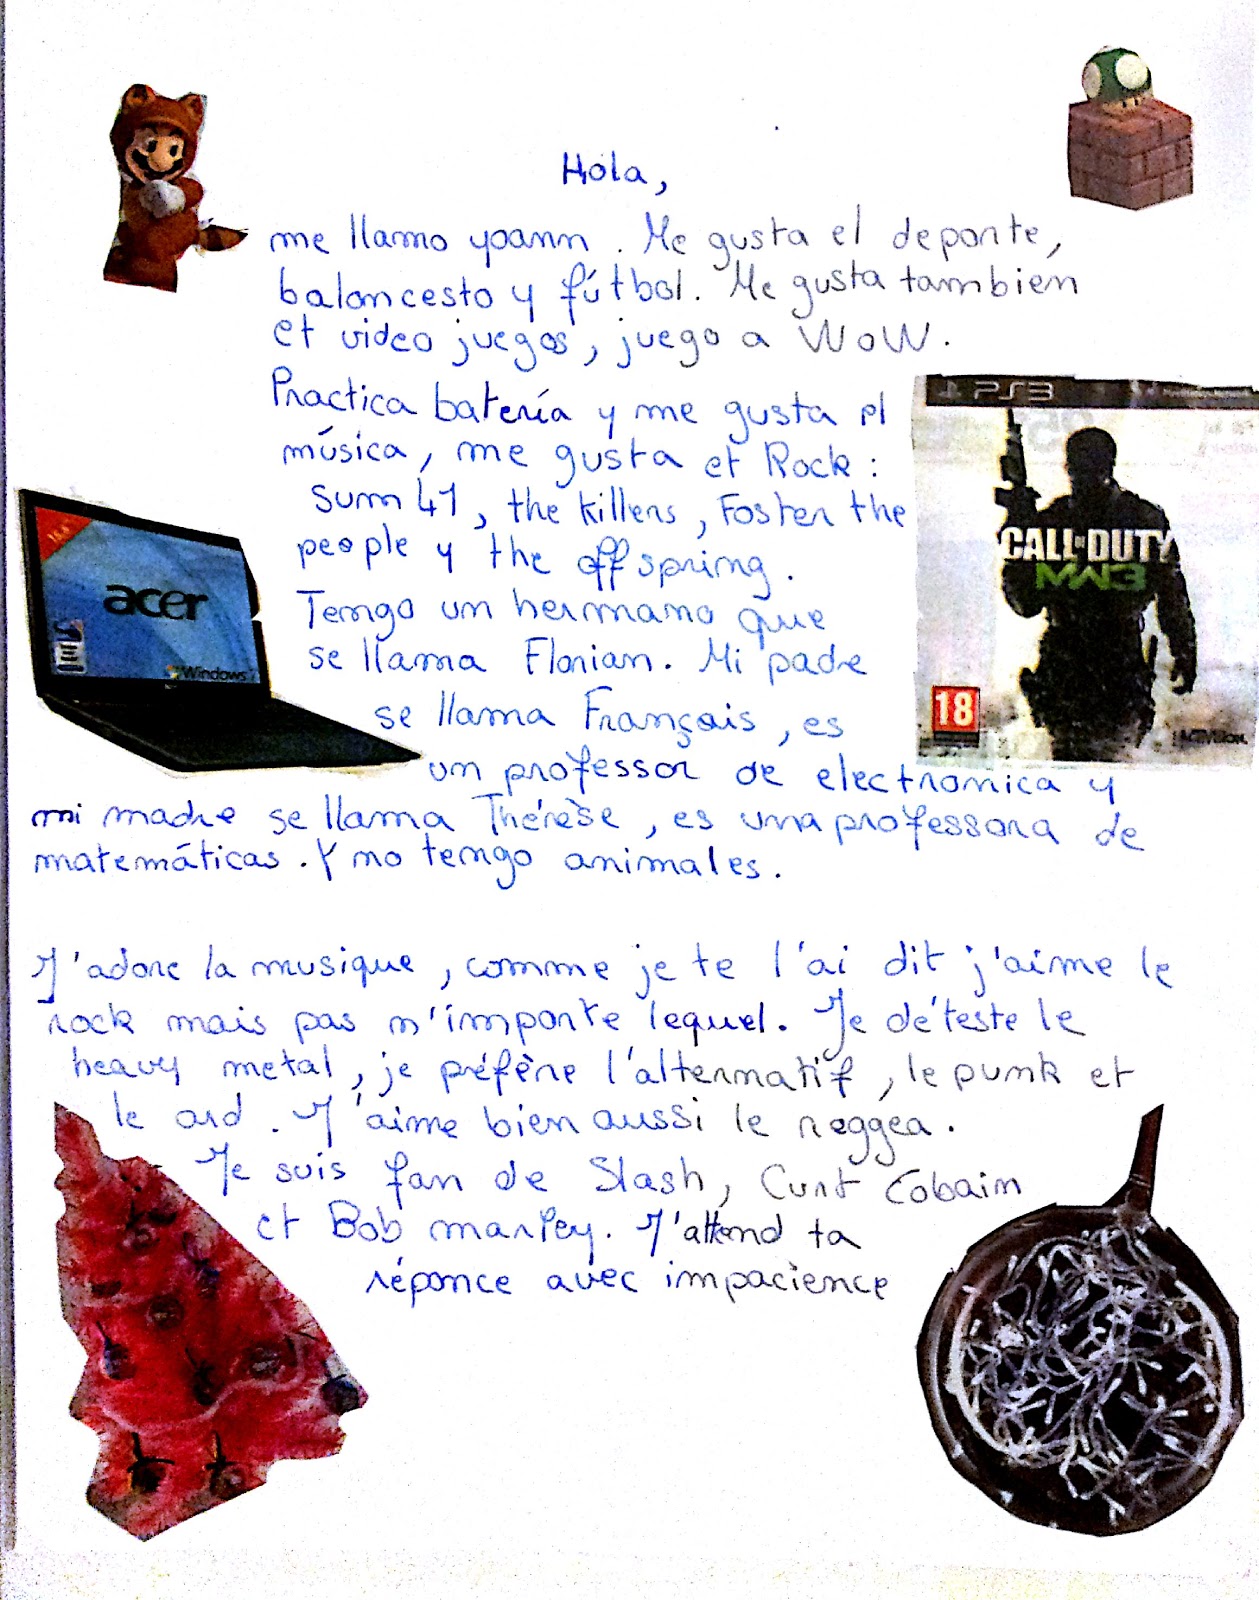 Hola,
me llamo yoann. Me gusta el deporte,
baloncesto y fútbol. Me gusta tambien
et video juegos, juego a WoW.
Practica batería y me gusta el
música, me gusta et Rock :
Sum 41, the killers, Foster the
people y the offspring.
Tengo un hermano que
se llama Florian. Mi padre
se llama Français, es
un professor de electronica y
mi madre se llama Thérèse, es una professora de
matemáticas. Y no tengo animales.
J'adore la musique, comme je te l'ai dit j'aime le
rock mais pas n'importe lequel. Je déteste le
heavy metal, je préfère l'alternatif, le punk et
le ard. J'aime bien aussi le reggea.
Je suis fan de Slash, Curt Cobain
et Bob marley. J'attend ta
réponce avec impacience
PS3
CALL OF DUTY
MW3
18
ACTIVISION
acer
Windows 7